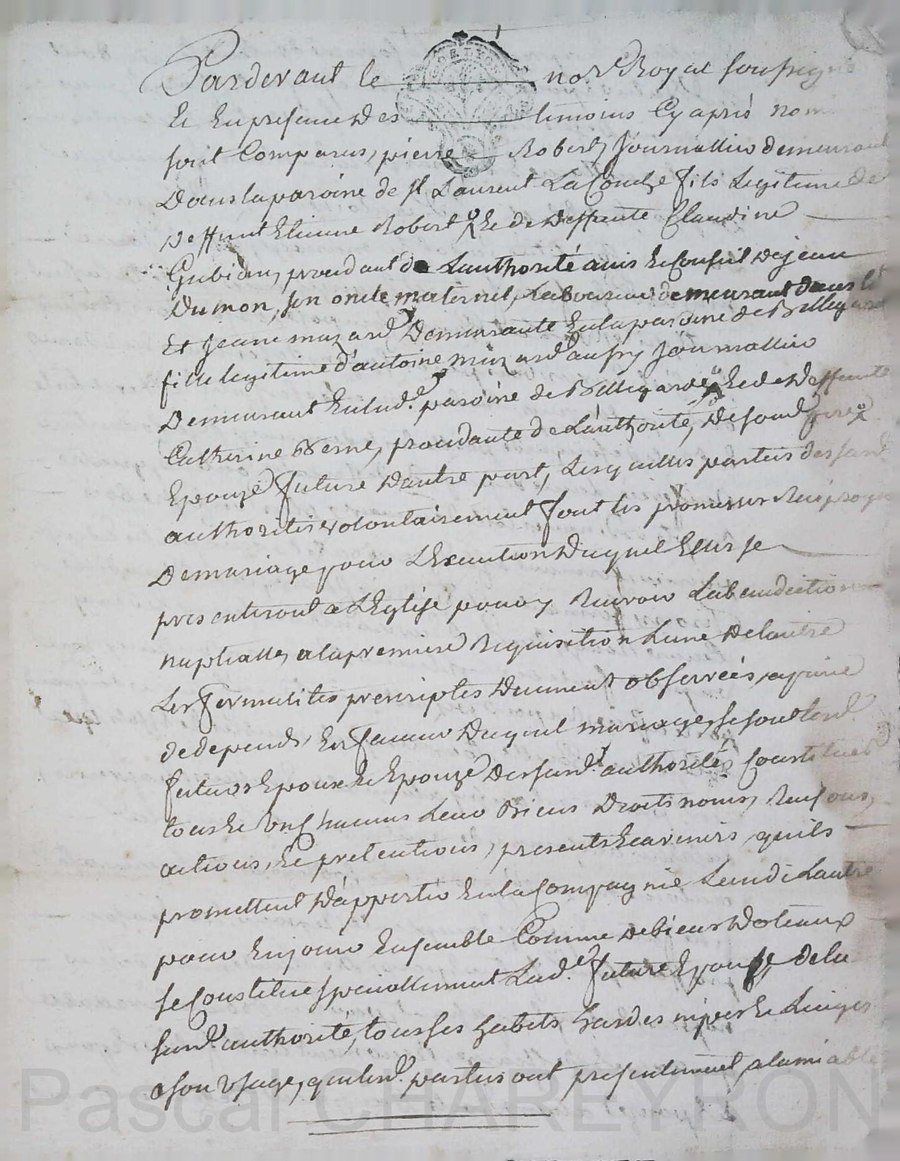 Pardevant le no.re Royal soussigné
Et En presence Des temoins Cy aprés nom
sont Comparus, pierre Robert, Journallier demeurant
Dans la paroisse de St Laurent La Conche fils Legitime de
Deffunt Etienne Robert Et de Deffunte Claudine
Gubian, procedant de Lauthorité avis Et Conseil De jean
Dumon, son oncle maternel, Laboureur demeurant dans
Et jeanne mazard Demeurante En la paroisse de Bellegarde
fille legitime d'antoine mazard aussy Journallier
Demeurant En lad.e paroisse de Bellegarde, Et de Deffunte
Catherine Berne, procedante de L'authorité, De sond. pere
Epouze future D'autre part, Lesquelles parties des sus.d
authorités volontairement font les promesses Reciproques
De mariage pour L'Execution Duquel Elles se
presenteront a L'Eglise pour y Recevoir La benediction
nuptialle, a la premiere Requisition L'une De Lautre
Les formalites prescriptes Dument observées, a peine
de depends, En faveur Duquel mariage, se sont lesd.
futurs Epoux Et Epouze Des sus.d authorités Constitués
tous Et Un chacuns Leur Biens Droits noms, Raisons,
actions, Et pretentions, presents Et avenirs, quils
promettent D'apporter En la Compagnie Lun de Lautre
pour En jouir Ensemble Comme De biens Doteaux
se Constitue specialement Lad.e future Epouse de la
sus.d authorité, tous ses habits hardes nipes Et Linges
a son Usage, que lesd. parties ont presentement, a lamiable
Pascal CHAREYRON